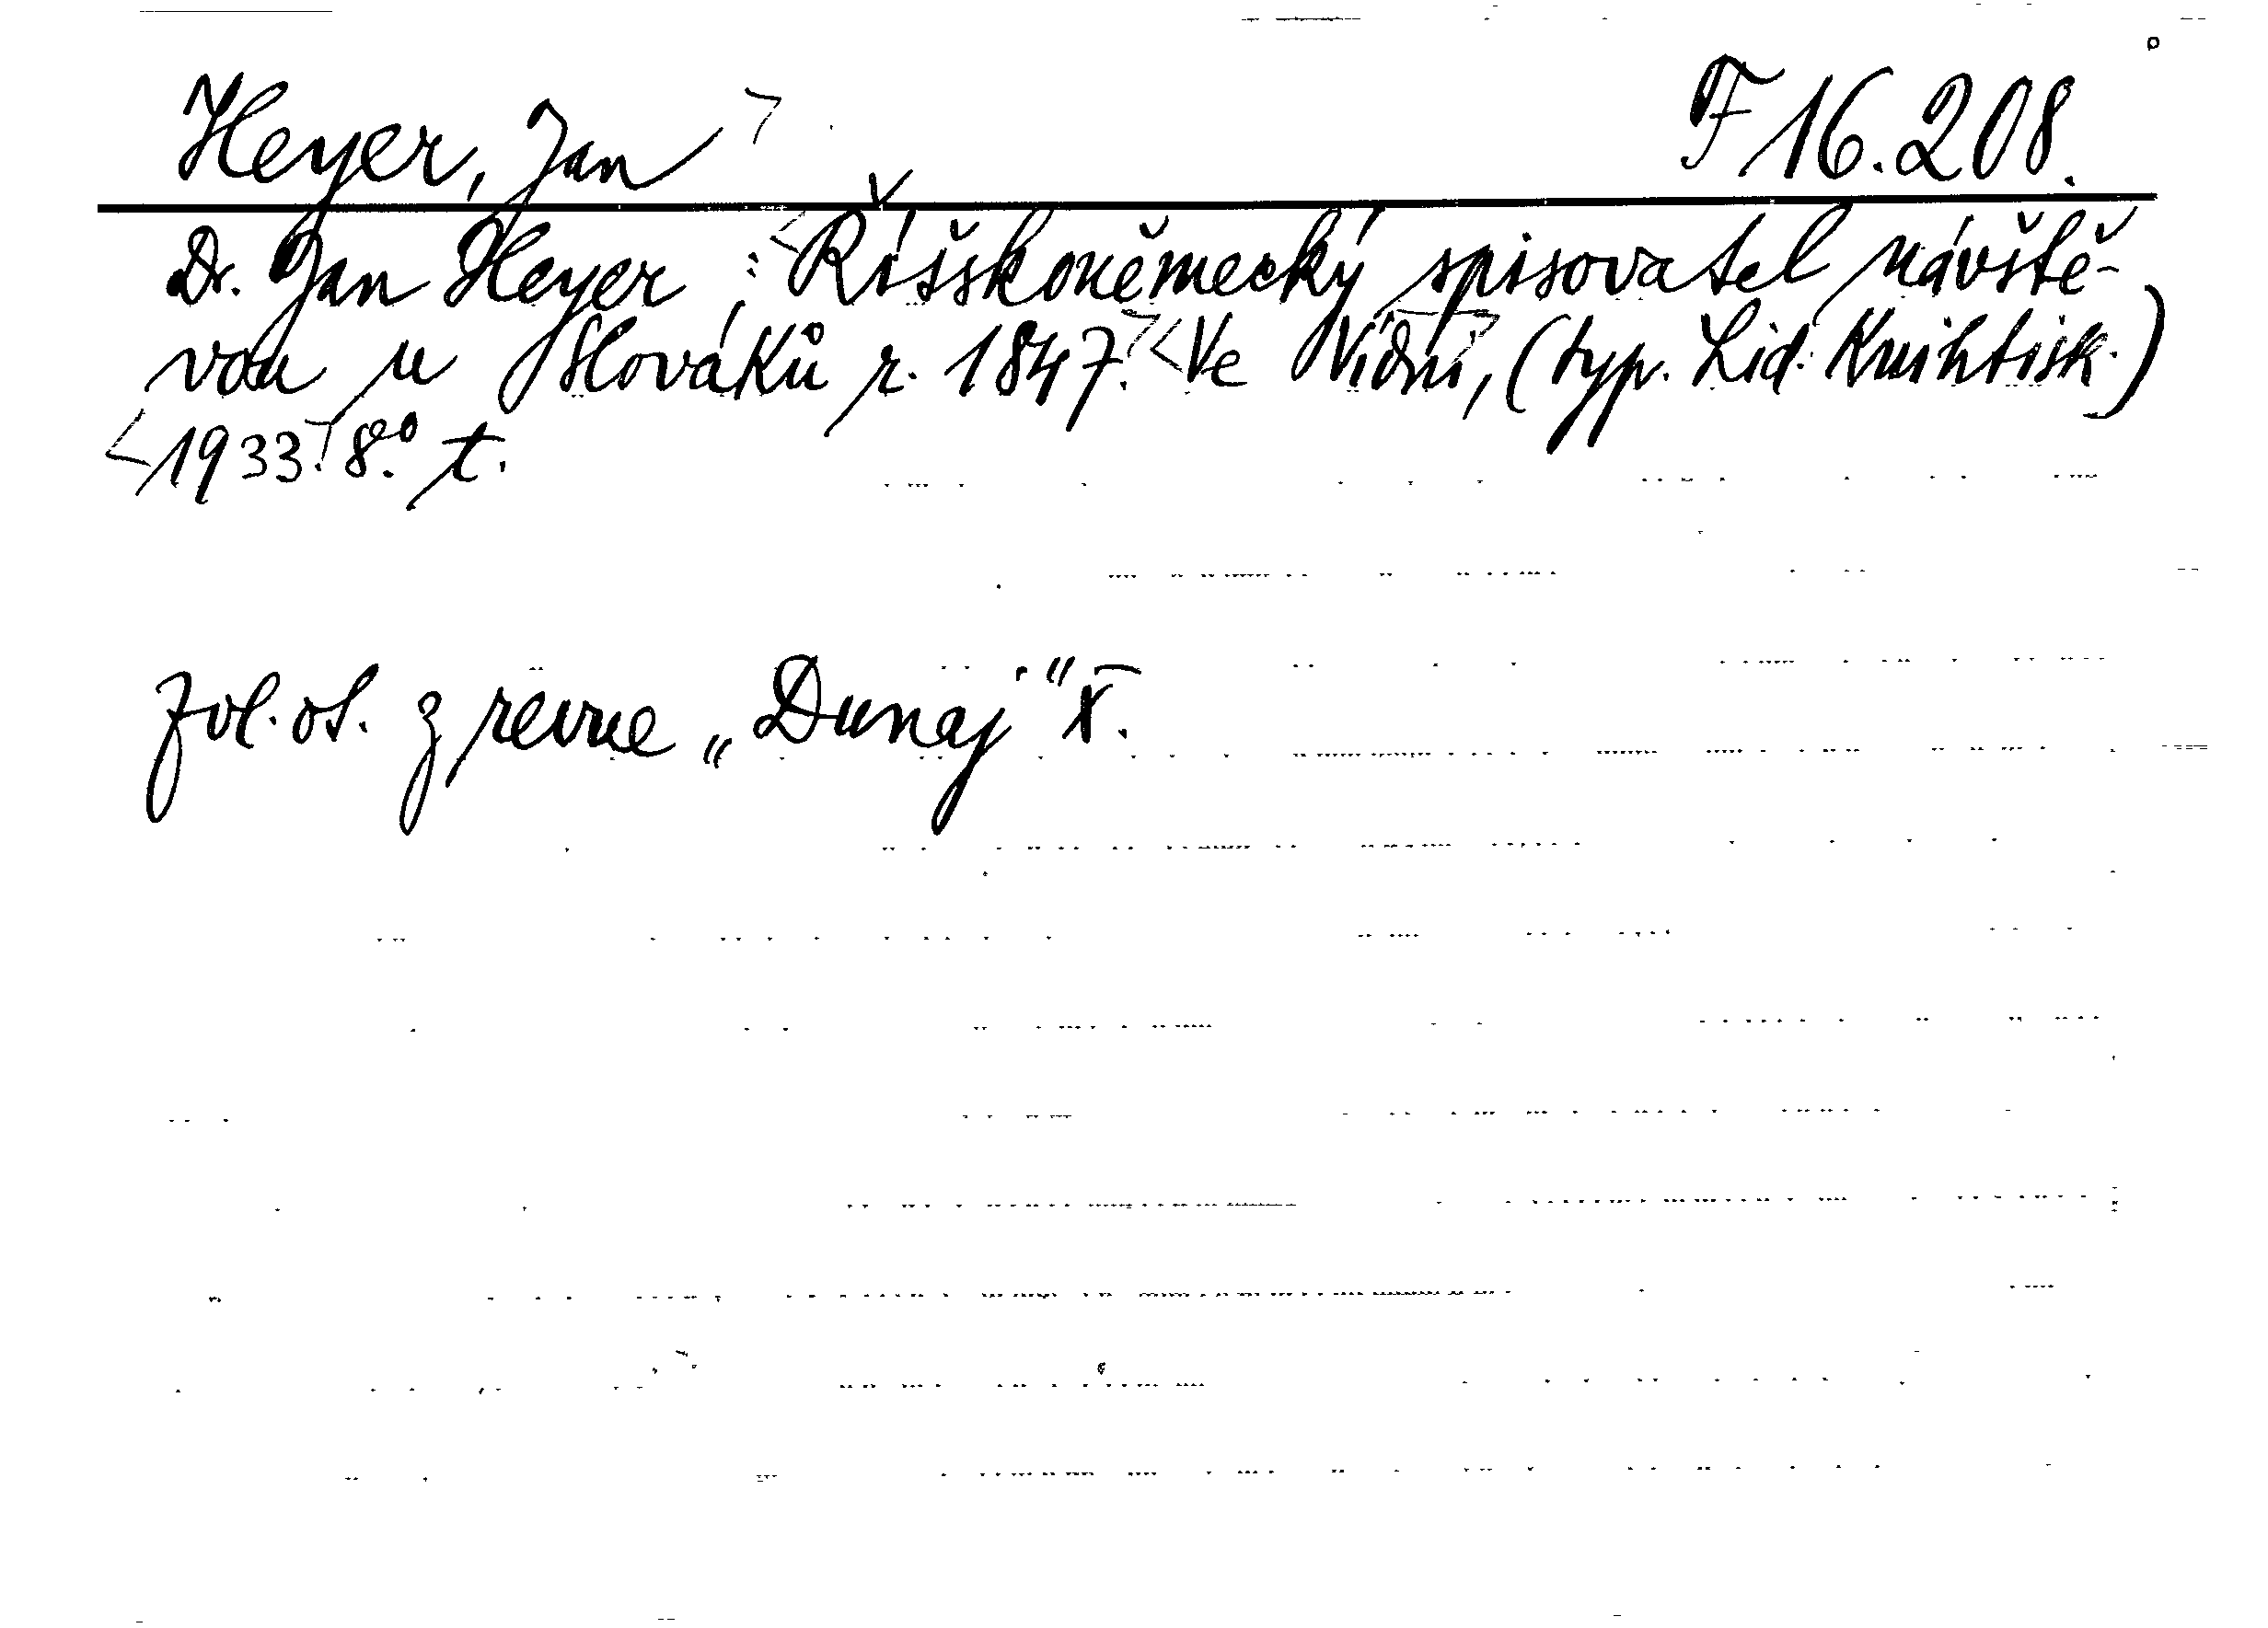 Heyer, Jan F 16.208.
Dr. Jan Heyer: Říšskoněmecký spisovatel návště-
vou u Slováků r. 1847. Ve Vídni, (typ. Lid. Knihtisk.)
1933. 8° t.
Zvl. ot. z revue „Dunaj" X.